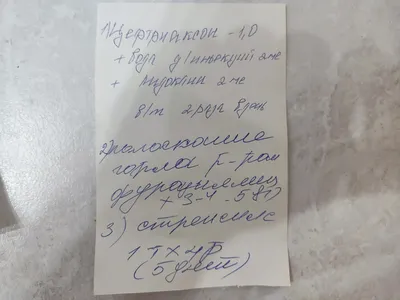 1) Цефтриаксон - 1,0
+ вода д/инъекций 2 мл
+ лидокаин 2 мл
в/м 2 раза в день
2) полоскание
горла р-ром
фурацилина
3) стрепсилс
1 т х 4 р
(5 дней)